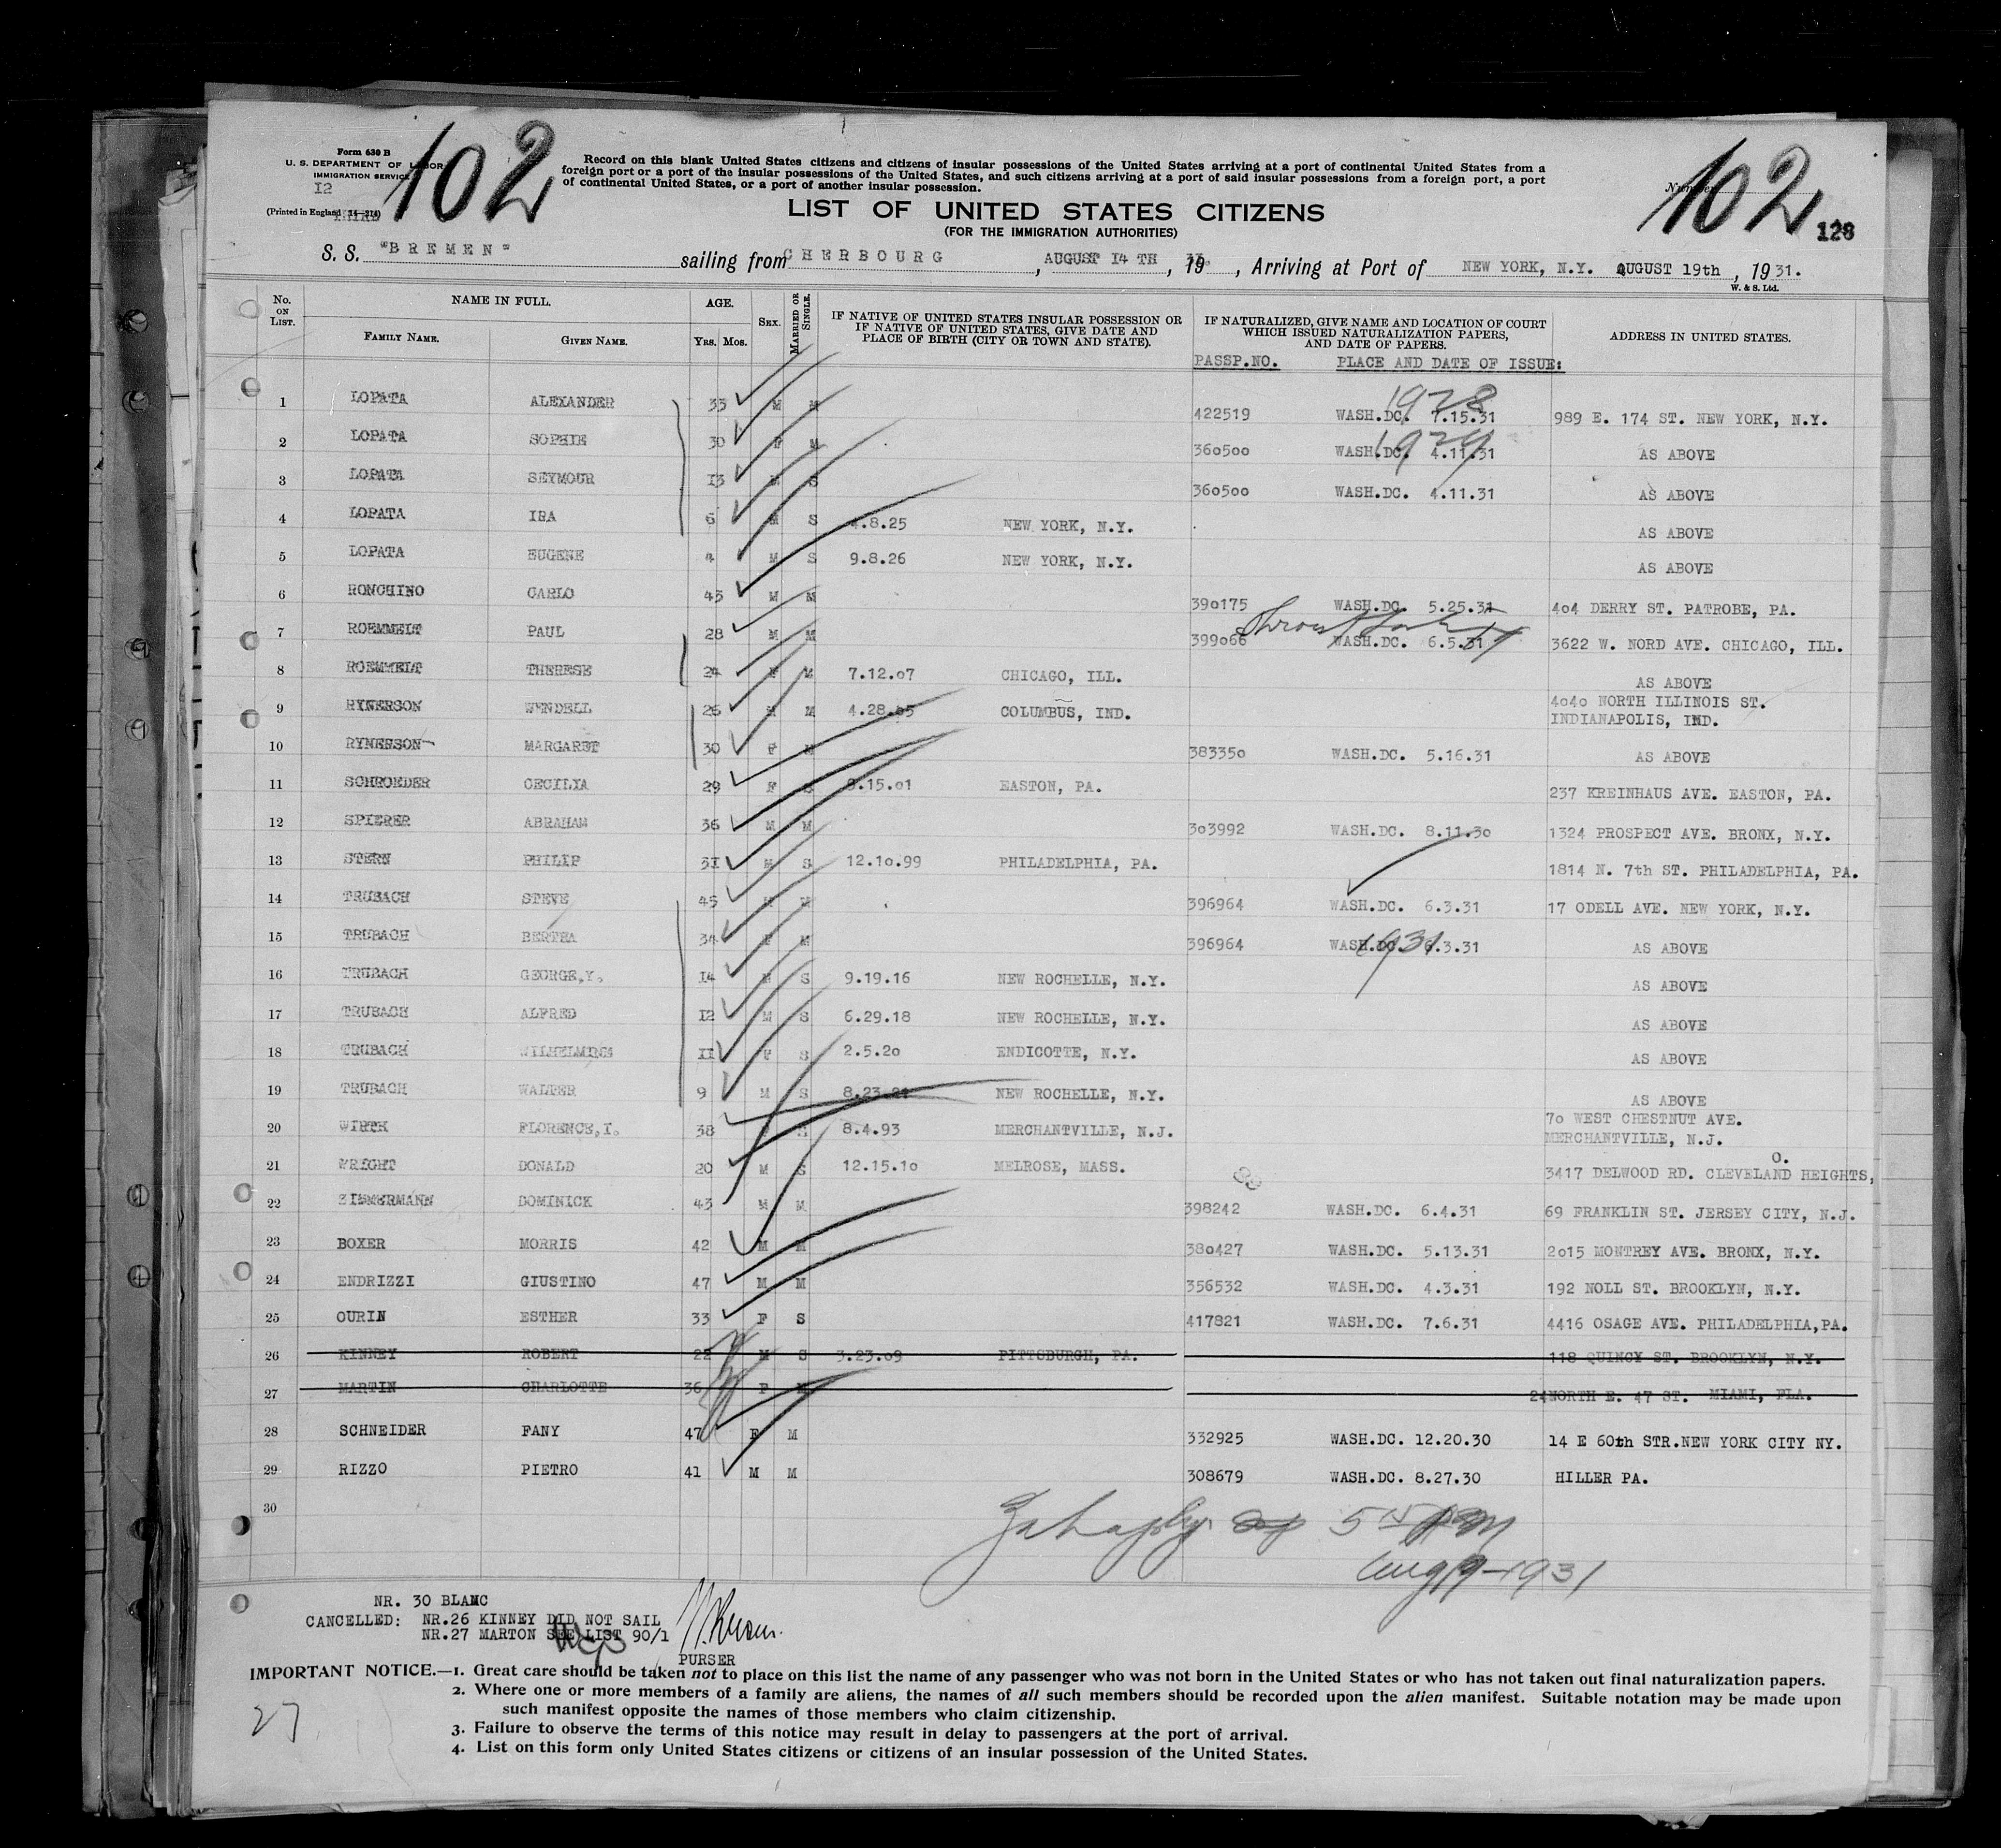 Form 630 B
U. S. DEPARTMENT OF LABOR
IMMIGRATION SERVICE
I2
(Printed in England 14—214)
THIRD
102
Record on this blank United States citizens and citizens of insular possessions of the United States arriving at a port of continental United States from a
foreign port or a port of the insular possessions of the United States, and such citizens arriving at a port of said insular possessions from a foreign port, a port
of continental United States, or a port of another insular possession.
Number
102
128
LIST OF UNITED STATES CITIZENS
(FOR THE IMMIGRATION AUTHORITIES)
S. S. "BREMEN" sailing from CHERBOURG, AUGUST I4 TH, 19 , Arriving at Port of NEW YORK, N.Y. AUGUST 19th, 1931.
W. & S. Ltd.
No. ON LIST. NAME IN FULL. FAMILY NAME. GIVEN NAME. AGE. YRS. MOS. SEX. MARRIED OR SINGLE. IF NATIVE OF UNITED STATES INSULAR POSSESSION OR IF NATIVE OF UNITED STATES, GIVE DATE AND PLACE OF BIRTH (CITY OR TOWN AND STATE). IF NATURALIZED, GIVE NAME AND LOCATION OF COURT WHICH ISSUED NATURALIZATION PAPERS, AND DATE OF PAPERS. ADDRESS IN UNITED STATES.
PASSP.NO. PLACE AND DATE OF ISSUE:
1928
1 LOPATA ALEXANDER 33 M M 422519 WASH.DC. 7.15.31 989 E. 174 ST. NEW YORK, N.Y.
1929
2 LOPATA SOPHIE 30 F M 360500 WASH.DC. 4.11.31 AS ABOVE
3 LOPATA SEYMOUR I3 M S 360500 WASH.DC. 4.11.31 AS ABOVE
4 LOPATA IRA 6 M S 4.8.25 NEW YORK, N.Y. AS ABOVE
5 LOPATA EUGENE 4 M S 9.8.26 NEW YORK, N.Y. AS ABOVE
6 RONCHINO CARLO 45 M M 390175 WASH.DC. 5.25.31 404 DERRY ST. PATROBE, PA.
7 ROEMMELT PAUL 28 M M 399066 WASH.DC. 6.5.31 3622 W. NORD AVE. CHICAGO, ILL.
8 ROEMMELT THERESE 24 F M 7.12.07 CHICAGO, ILL. AS ABOVE
9 RYNERSON WENDELL 26 M M 4.28.05 COLUMBUS, IND. 4040 NORTH ILLINOIS ST.
INDIANAPOLIS, IND.
10 RYNERSON MARGARET 30 F M 383350 WASH.DC. 5.16.31 AS ABOVE
11 SCHROEDER CECILIA 29 F S 9.15.01 EASTON, PA. 237 KREINHAUS AVE. EASTON, PA.
12 SPIERER ABRAHAM 36 M M 303992 WASH.DC. 8.11.30 1324 PROSPECT AVE. BRONX, N.Y.
13 STERN PHILIP 3I M S 12.10.99 PHILADELPHIA, PA. 1814 N. 7th ST. PHILADELPHIA, PA.
14 TRUBACH STEVE 45 M M 396964 WASH.DC. 6.3.31 17 ODELL AVE. NEW YORK, N.Y.
15 TRUBACH BERTHA 34 F M 396964 WASH.DC. 6.3.31 AS ABOVE
1931
16 TRUBACH GEORGE,Y. I4 M S 9.19.16 NEW ROCHELLE, N.Y. AS ABOVE
17 TRUBACH ALFRED I2 M S 6.29.18 NEW ROCHELLE, N.Y. AS ABOVE
18 TRUBACH WILHELMINE II F S 2.5.20 ENDICOTTE, N.Y. AS ABOVE
19 TRUBACH WALTER 9 M S 8.23.21 NEW ROCHELLE, N.Y. AS ABOVE
20 WIRTH FLORENCE,I. 38 F S 8.4.93 MERCHANTVILLE, N.J. 70 WEST CHESTNUT AVE.
MERCHANTVILLE, N.J.
21 WRIGHT DONALD 20 M S 12.15.10 MELROSE, MASS. 3417 DELWOOD RD. CLEVELAND HEIGHTS, O.
22 ZIMMERMANN DOMINICK 43 M M 398242 WASH.DC. 6.4.31 69 FRANKLIN ST. JERSEY CITY, N.J.
23 BOXER MORRIS 42 M M 380427 WASH.DC. 5.13.31 2015 MONTREY AVE. BRONX, N.Y.
24 ENDRIZZI GIUSTINO 47 M M 356532 WASH.DC. 4.3.31 192 NOLL ST. BROOKLYN, N.Y.
25 OURIN ESTHER 33 F S 417821 WASH.DC. 7.6.31 4416 OSAGE AVE. PHILADELPHIA,PA.
26 KINNEY ROBERT 22 M S 3.23.09 PITTSBURGH, PA. 118 QUINCY ST. BROOKLYN, N.Y.
27 MARTIN CHARLOTTE 36 F M 24NORTH E. 47 ST. MIAMI, FLA.
28 SCHNEIDER FANY 47 F M 332925 WASH.DC. 12.20.30 14 E 60th STR.NEW YORK CITY NY.
29 RIZZO PIETRO 41 M M 308679 WASH.DC. 8.27.30 HILLER PA.
30
Aug 19-1931
NR. 30 BLANC
CANCELLED: NR.26 KINNEY DID NOT SAIL
NR.27 MARTON SEE LIST 90/1
PURSER
IMPORTANT NOTICE.—1. Great care should be taken not to place on this list the name of any passenger who was not born in the United States or who has not taken out final naturalization papers.
2. Where one or more members of a family are aliens, the names of all such members should be recorded upon the alien manifest. Suitable notation may be made upon
such manifest opposite the names of those members who claim citizenship.
3. Failure to observe the terms of this notice may result in delay to passengers at the port of arrival.
4. List on this form only United States citizens or citizens of an insular possession of the United States.
27